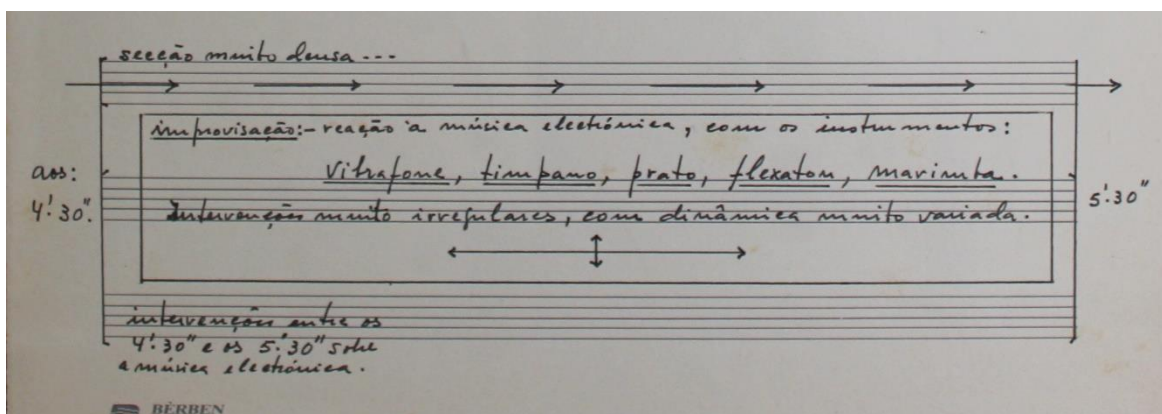 secção muito densa ---
improvisação:- reação à música electrónica, com os instrumentos:
vibrafone, timpano, prato, flexaton, marimba.
aos:
4'.30".
5'.30"
Intervenções muito irregulares, com dinâmica muito variada.
intervenções entre os
4'.30" e os 5'.30" sobre
a música electrónica.
BÈRBEN